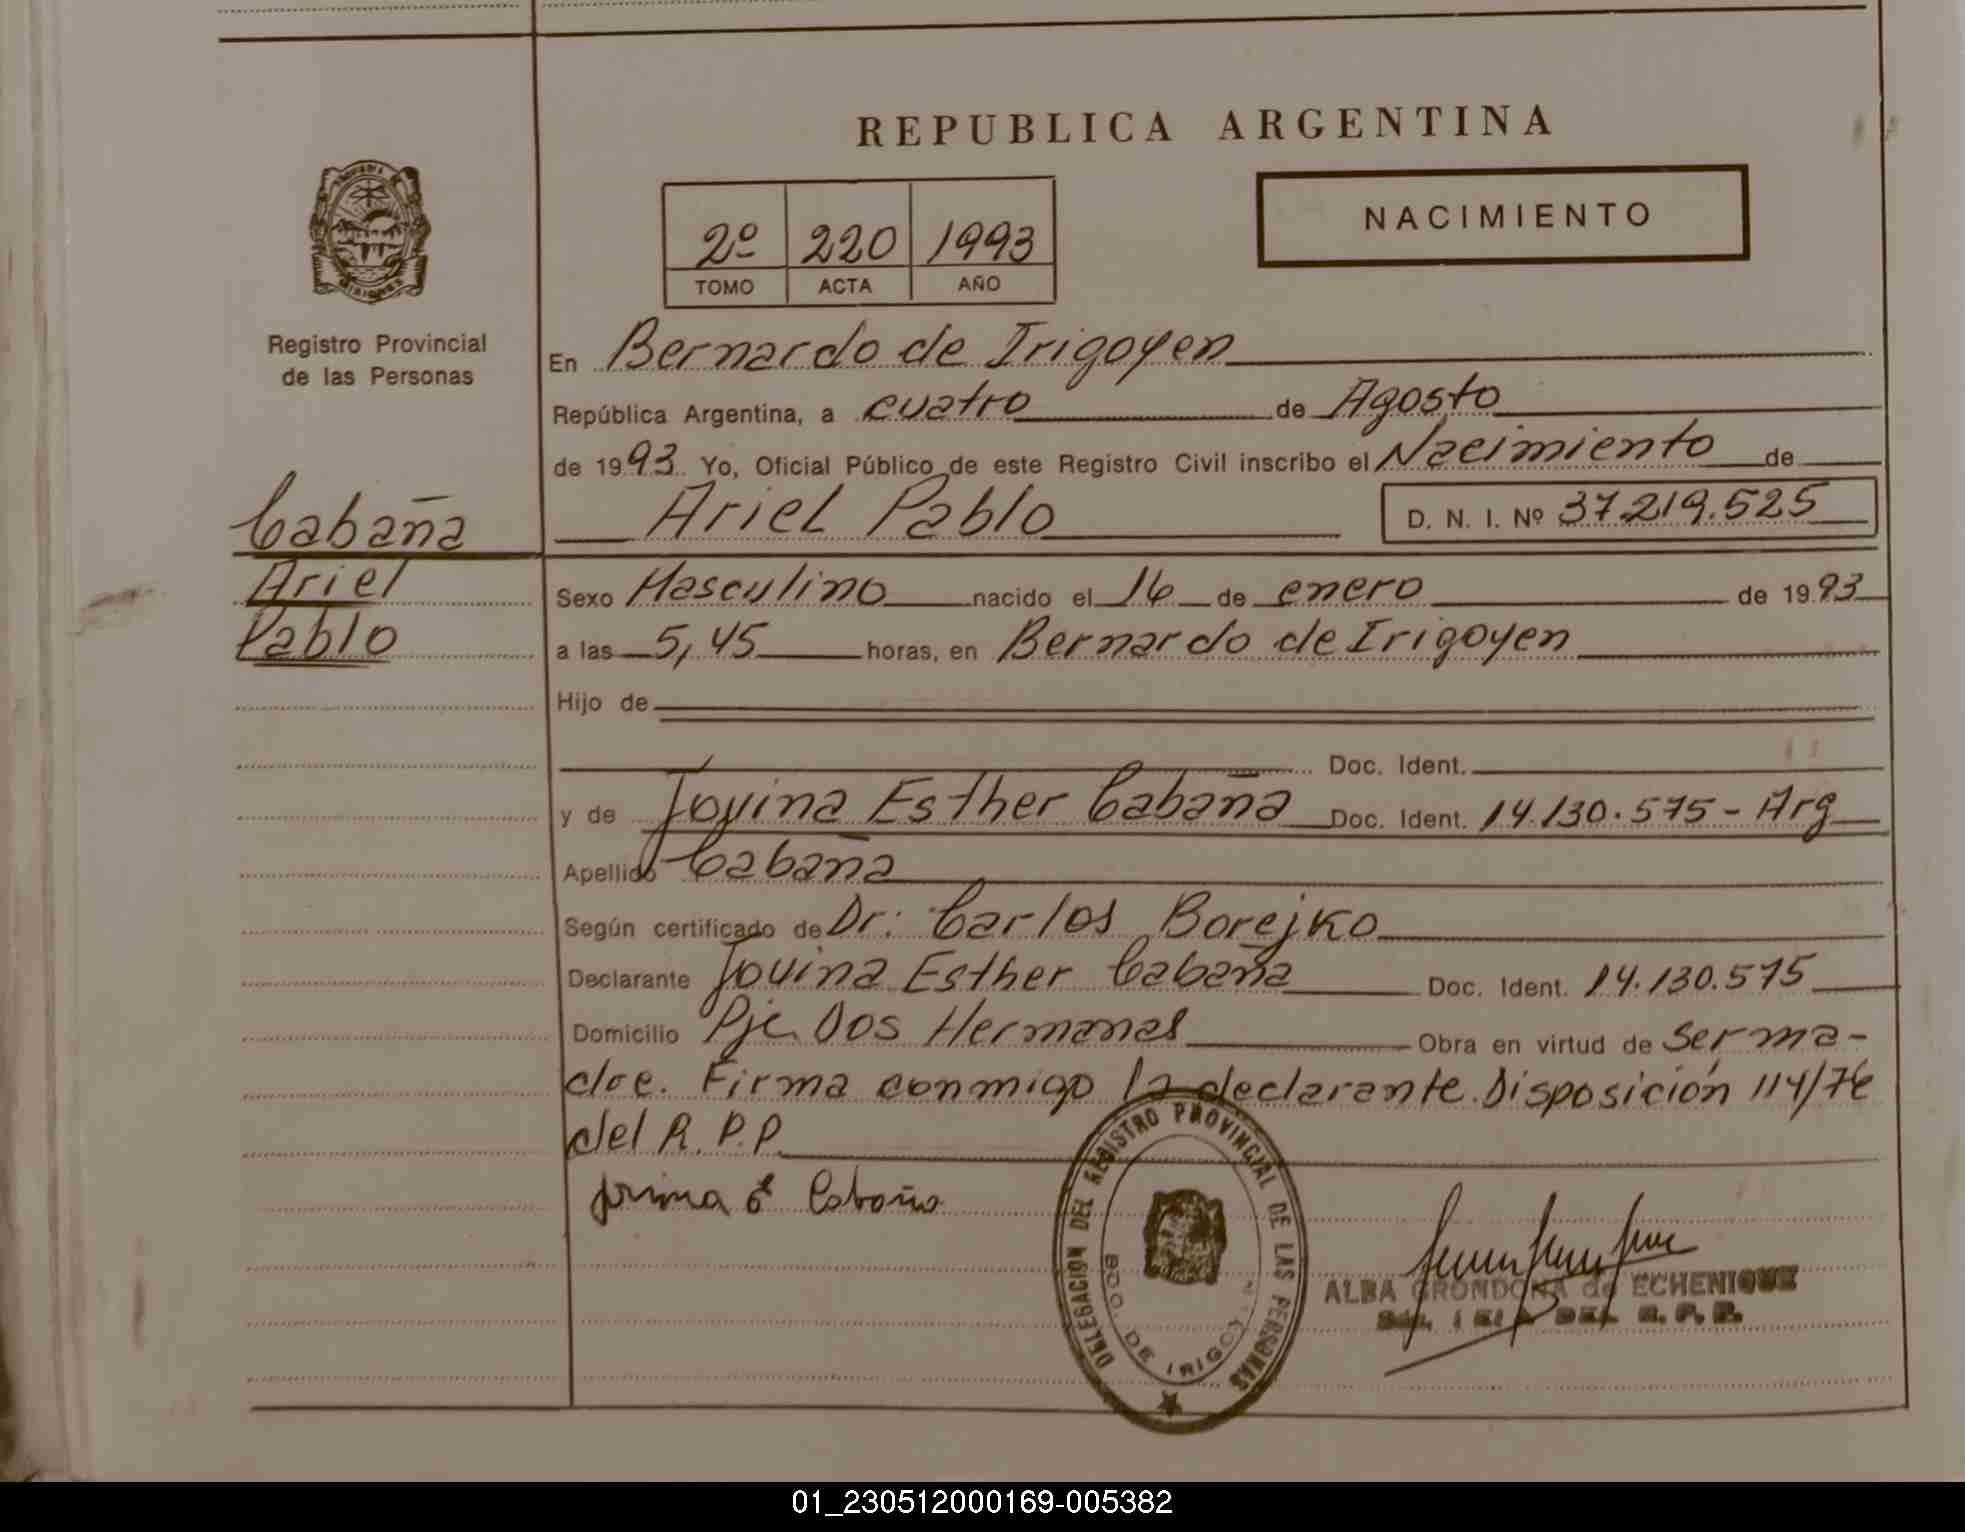 REPUBLICA ARGENTINA
NACIMIENTO
2º 220 1993
TOMO ACTA AÑO
Registro Provincial
de las Personas
En Bernardo de Irigoyen
República Argentina, a cuatro de Agosto
de 1993 Yo, Oficial Público de este Registro Civil inscribo el Nacimiento de
Ariel Pablo D. N. I. Nº 37.219.525
Cabaña
Ariel
Pablo
Sexo Masculino nacido el 16 de enero de 1993
a las 5,45 horas, en Bernardo de Irigoyen
Hijo de
Doc. Ident.
y de Jovina Esther Cabaña Doc. Ident. 14.130.575 - Arg
Apellido Cabaña
Según certificado de Dr: Carlos Borejko
Declarante Jovina Esther Cabaña Doc. Ident. 14.130.575
Domicilio Pje Dos Hermanas Obra en virtud de Ser ma-
dre. Firma conmigo la declarante. Disposición 114/76
del R. P. P.
Cabaña
DELEGACION DEL REGISTRO PROVINCIAL DE LAS PERSONAS
BDO. DE IRIGOYEN
ALBA GRONDONA de ECHENIQUE
DEL R. P. P.
01_230512000169-005382